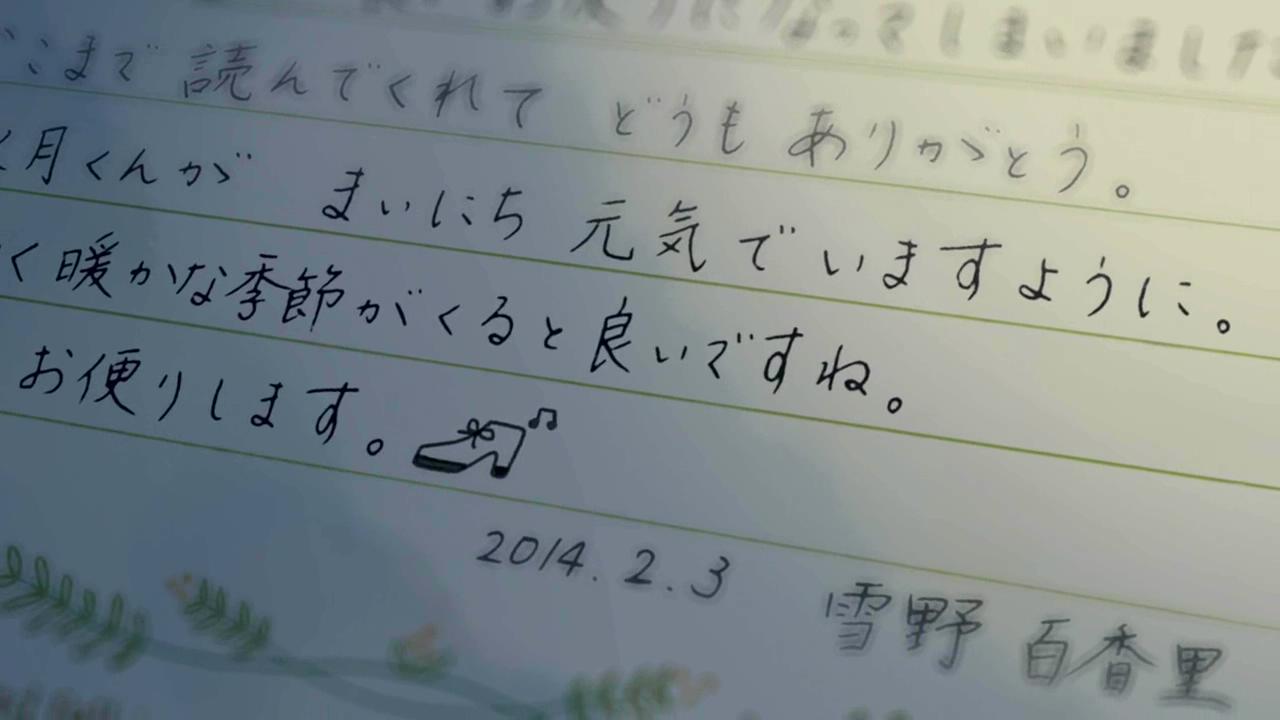 なってしまいました
ここまで 読んでくれて どうも ありがとう。
月くんが まいにち 元気でいますように。
く暖かな季節がくると良いですね。
お便りします。
2014.2.3 雪野 百香里